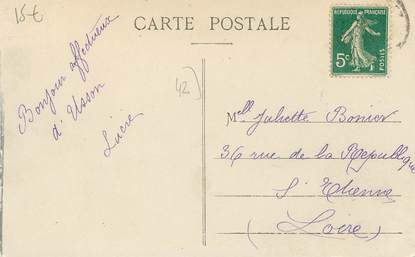 15€
CARTE POSTALE
REPUBLIQUE FRANÇAISE
5c
42
Bonjour affectueux
d'Usson
Lucie
Melle Juliette Bonior
36 rue de la République
St Etienne
(Loire)